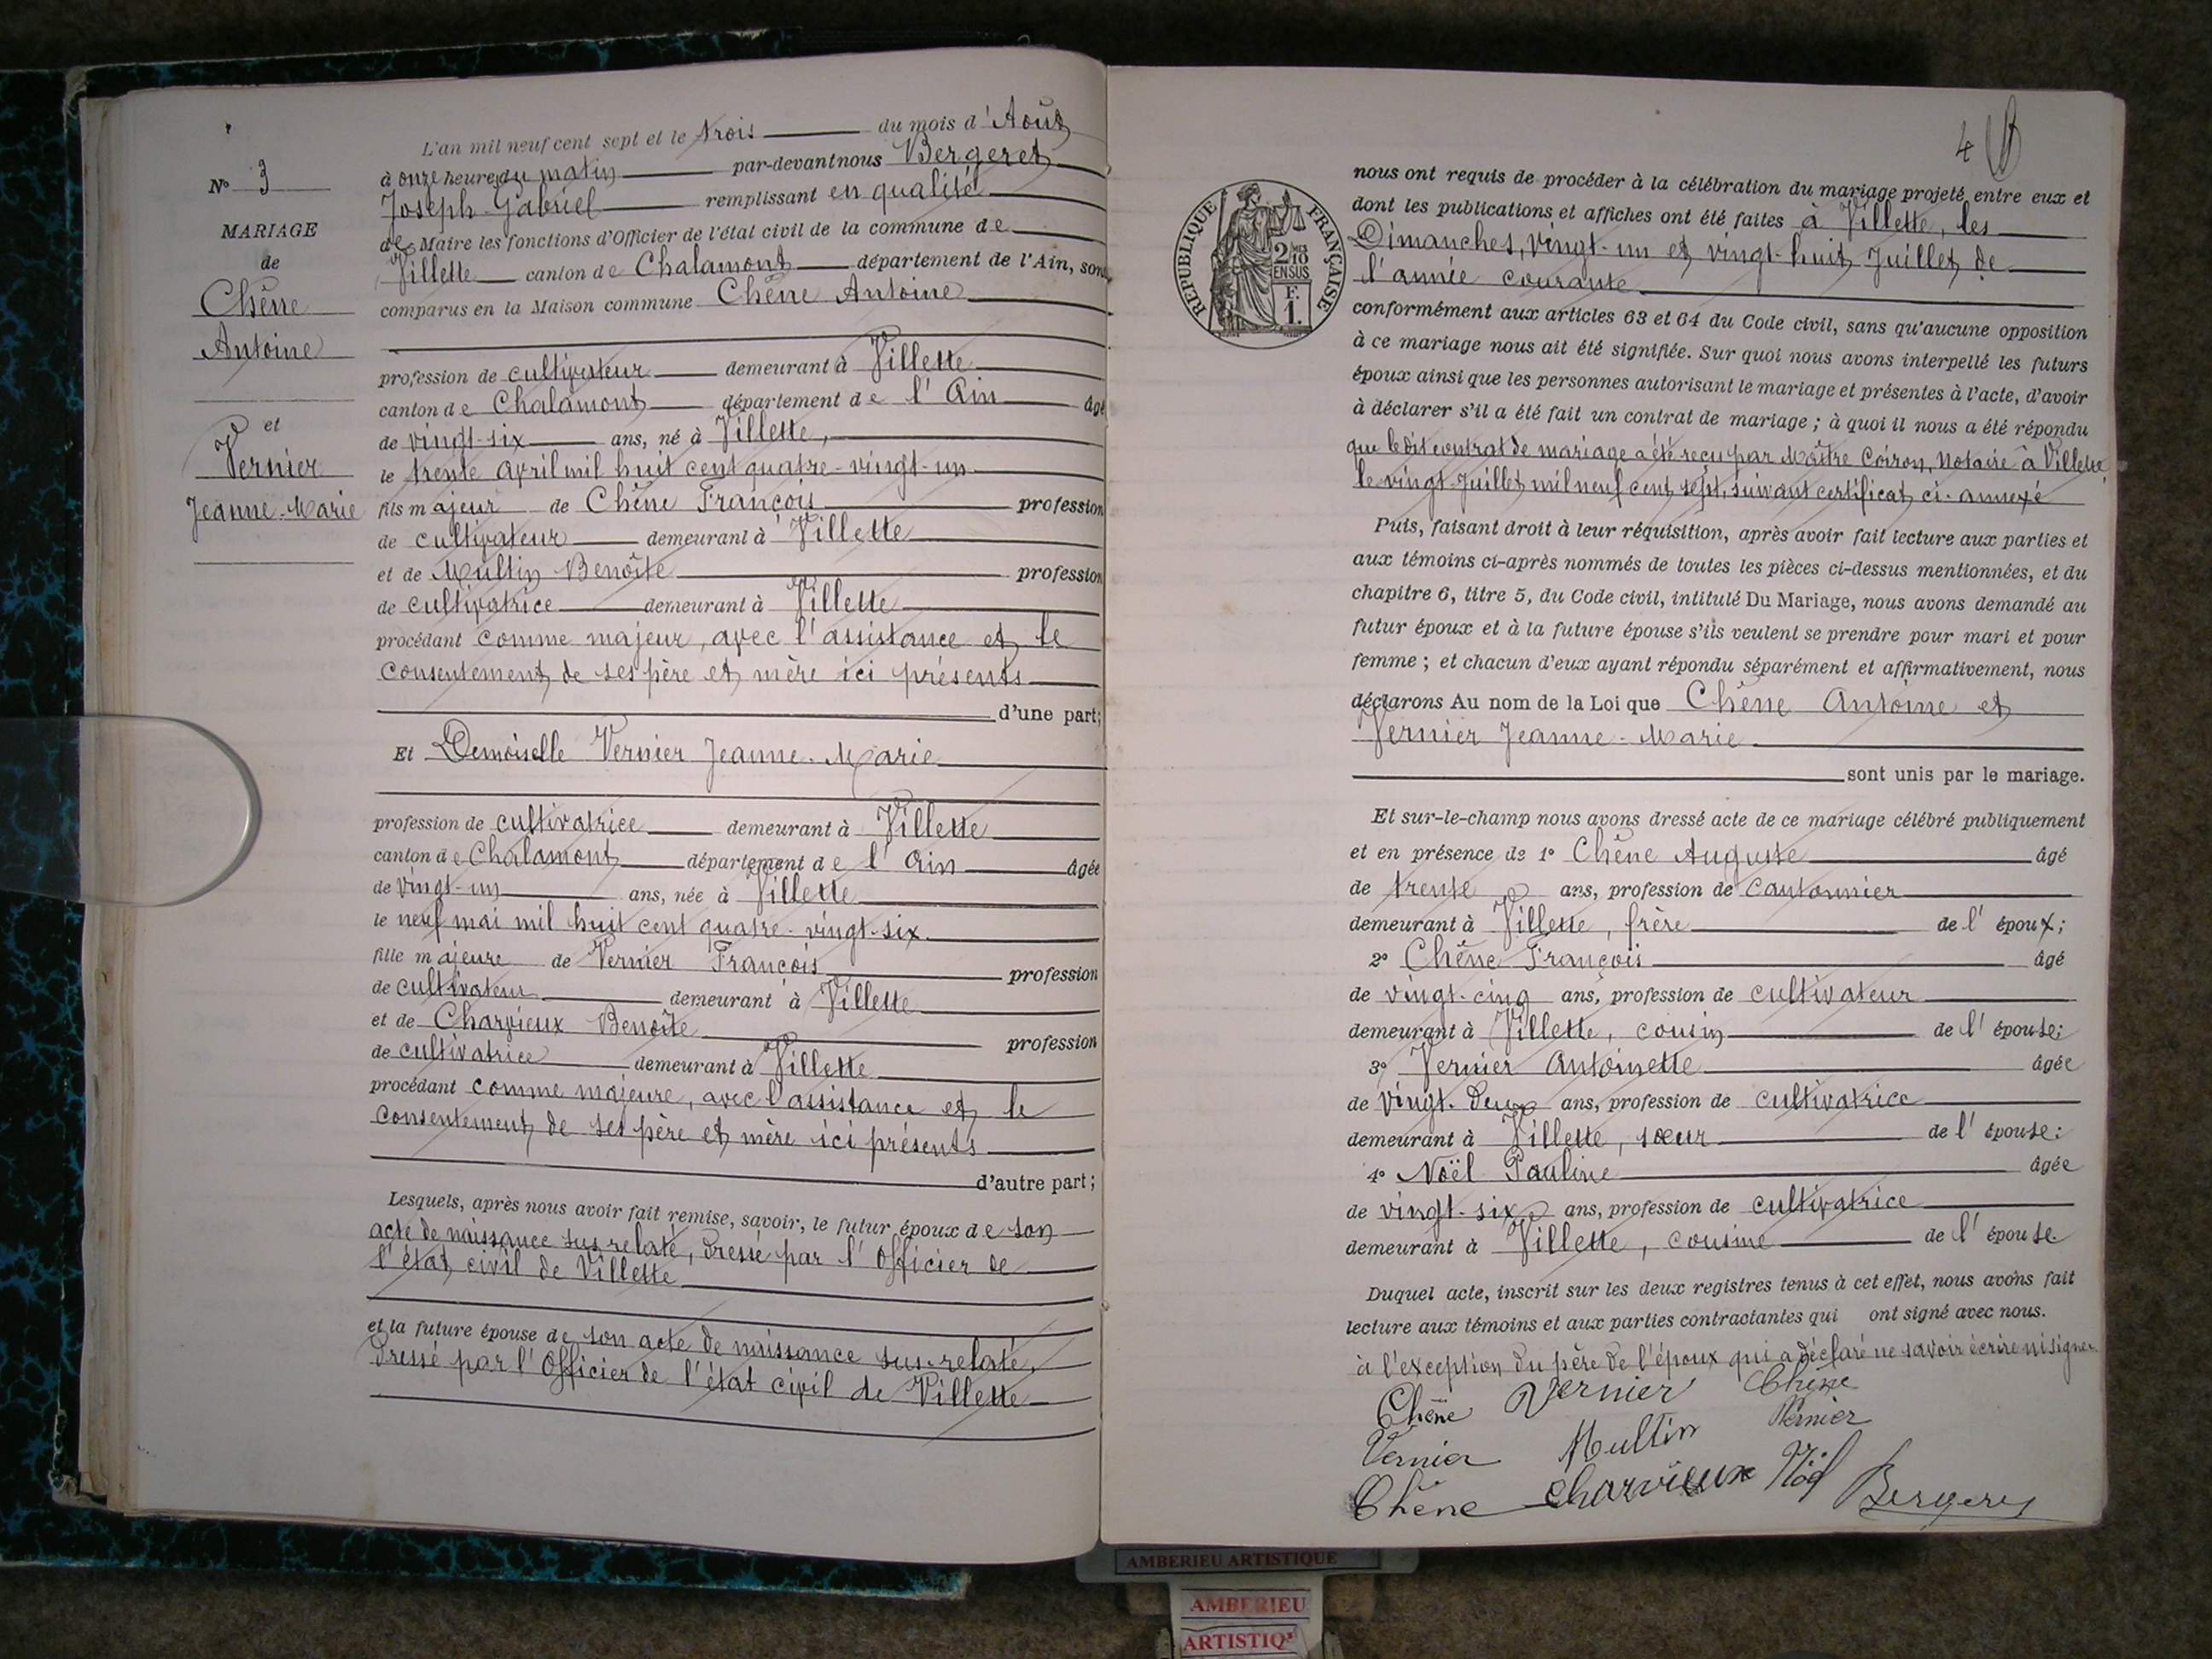 N° 3
MARIAGE
de
Chêne
Antoine
et
Vernier
Jeanne-Marie
L'an mil neuf cent sept et le trois du mois d'Août
à onze heures du matin par-devant nous Bergeret
Joseph-Gabriel remplissant en qualité
de Maire les fonctions d'Officier de l'état civil de la commune de
Villette canton de Chalamont département de l'Ain, sont
comparus en la Maison commune Chêne Antoine
profession de cultivateur demeurant à Villette
canton de Chalamont département de l'Ain âgé
de vingt-six ans, né à Villette,
le trente avril mil huit cent quatre-vingt-un
fils majeur de Chêne François profession
de cultivateur demeurant à Villette
et de Multin Benoîte profession
de cultivatrice demeurant à Villette
procédant comme majeur, avec l'assistance et le
consentement de ses père et mère ici présents
d'une part;
Et Demoiselle Vernier Jeanne-Marie
profession de cultivatrice demeurant à Villette
canton de Chalamont département de l'Ain âgée
de vingt-un ans, née à Villette
le neuf mai mil huit cent quatre-vingt-six
fille majeure de Vernier François profession
de cultivateur demeurant à Villette
et de Charvieux Benoîte profession
de cultivatrice demeurant à Villette
procédant comme majeure, avec l'assistance et le
consentement de ses père et mère ici présents
d'autre part;
Lesquels, après nous avoir fait remise, savoir, le futur époux de son
acte de naissance sus relaté, dressé par l'Officier de
l'état civil de Villette
et la future épouse de son acte de naissance sus-relaté,
dressé par l'Officier de l'état civil de Villette
4
REPUBLIQUE FRANÇAISE
2/10 MES
EN SUS
F.
1.
nous ont requis de procéder à la célébration du mariage projeté entre eux et
dont les publications et affiches ont été faites à Villette, les
Dimanches, vingt-un et vingt-huit Juillet de
l'année courante
conformément aux articles 63 et 64 du Code civil, sans qu'aucune opposition
à ce mariage nous ait été signifiée. Sur quoi nous avons interpellé les futurs
époux ainsi que les personnes autorisant le mariage et présentes à l'acte, d'avoir
à déclarer s'il a été fait un contrat de mariage ; à quoi il nous a été répondu
que ledit contrat de mariage a été reçu par Maître Coiron, Notaire à Villette,
le vingt Juillet mil neuf cent sept, suivant certificat ci-annexé
Puis, faisant droit à leur réquisition, après avoir fait lecture aux parties et
aux témoins ci-après nommés de toutes les pièces ci-dessus mentionnées, et du
chapitre 6, titre 5, du Code civil, intitulé Du Mariage, nous avons demandé au
futur époux et à la future épouse s'ils veulent se prendre pour mari et pour
femme ; et chacun d'eux ayant répondu séparément et affirmativement, nous
déclarons Au nom de la Loi que Chêne Antoine et
Vernier Jeanne-Marie
sont unis par le mariage.
Et sur-le-champ nous avons dressé acte de ce mariage célébré publiquement
et en présence de 1° Chêne Auguste âgé
de trente ans, profession de cantonnier
demeurant à Villette, frère de l'époux;
2° Chêne François âgé
de vingt-cinq ans, profession de cultivateur
demeurant à Villette, cousin de l'épouse;
3° Vernier Antoinette âgée
de vingt-deux ans, profession de cultivatrice
demeurant à Villette, sœur de l'épouse;
4° Noël Pauline âgée
de vingt-six ans, profession de cultivatrice
demeurant à Villette, cousine de l'épouse.
Duquel acte, inscrit sur les deux registres tenus à cet effet, nous avons fait
lecture aux témoins et aux parties contractantes qui ont signé avec nous.
à l'exception du père de l'époux qui a déclaré ne savoir écrire ni signer
Chêne Vernier Chêne
Vernier Multin Vernier
Chêne Charvieux Nöel Bergeret
AMBERIEU ARTISTIQUE
AMBERIEU
ARTISTIQ